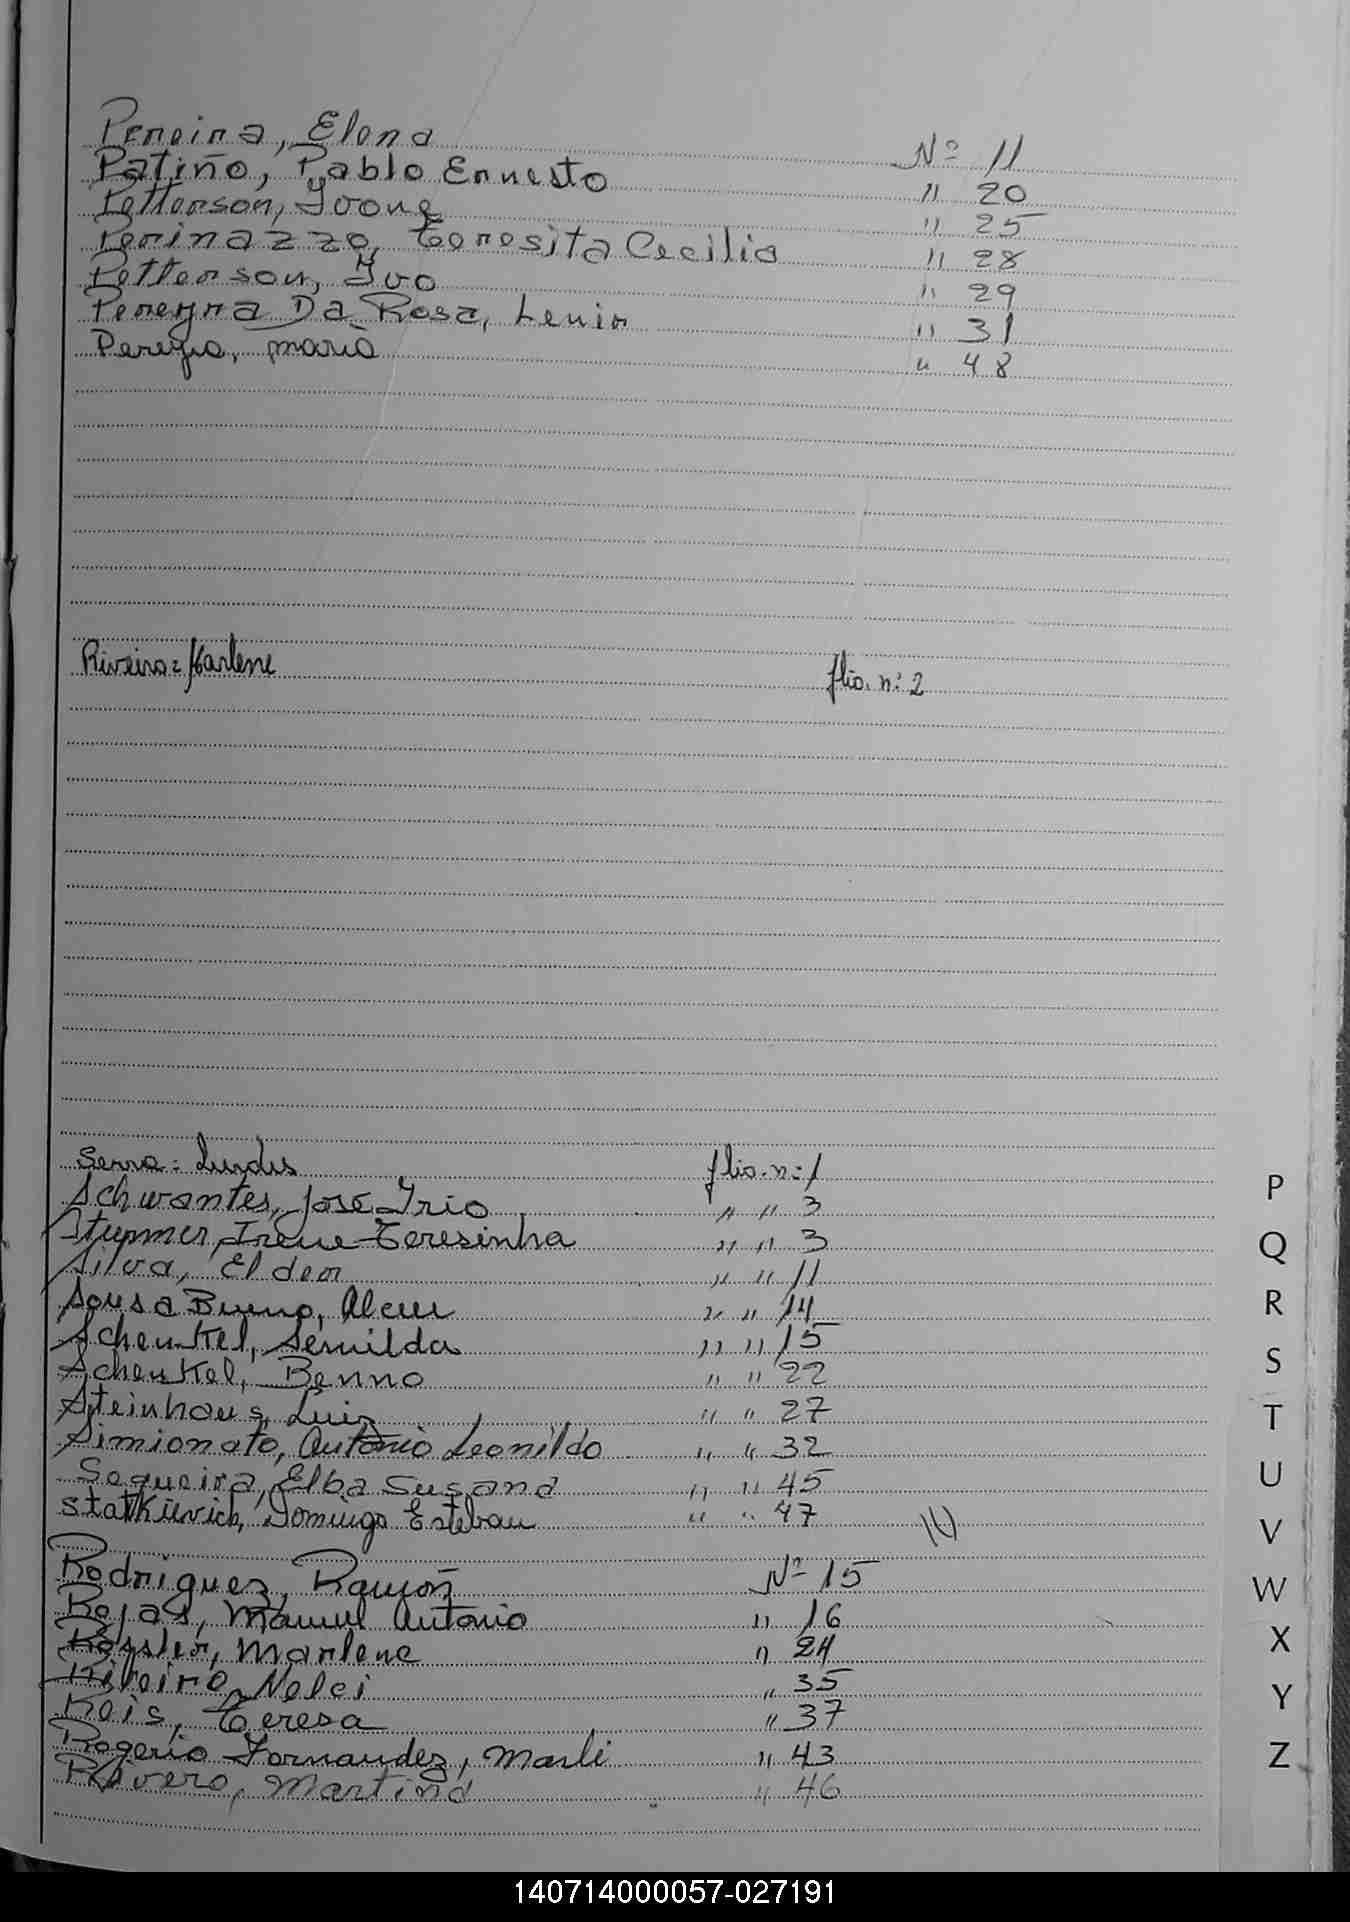 Pereira, Elena Nº 11
Patiño, Pablo Ernesto " 20
Petterson, Ivone " 25
Perinazzo, Teresita Cecilia " 28
Petterson, Ivo " 29
Pereyra Da Rosa, Lenir " 31
Pereyra, maria " 48
Riveiro = Marlene flio. n: 2
Serra: Lurdes flio. n: 1
Schwantes, José Irio " " 3
Stupmer, Irene Teresinha " " 3
Silva, Elder " " 11
Sousa Bueno, Alceu " " 14
Schenkel, Semilda " " 15
Schenkel, Benno " " 22
Steinhaus, Luiz " " 27
Simionato, Antonio Leonildo " " 32
Sequeira, Elba Susana " " 45
Statkievich, Domingo Esteban " " 47
Rodriguez, Ramón Nº 15
Rojas, Manuel Antonio " 16
Rossler, Marlene " 24
Riveiro Nelci " 35
Reis, Teresa " 37
Rogerio Fernandez, Marli " 43
Rivero, Martina " 46
P
Q
R
S
T
U
V
W
X
Y
Z
140714000057-027191